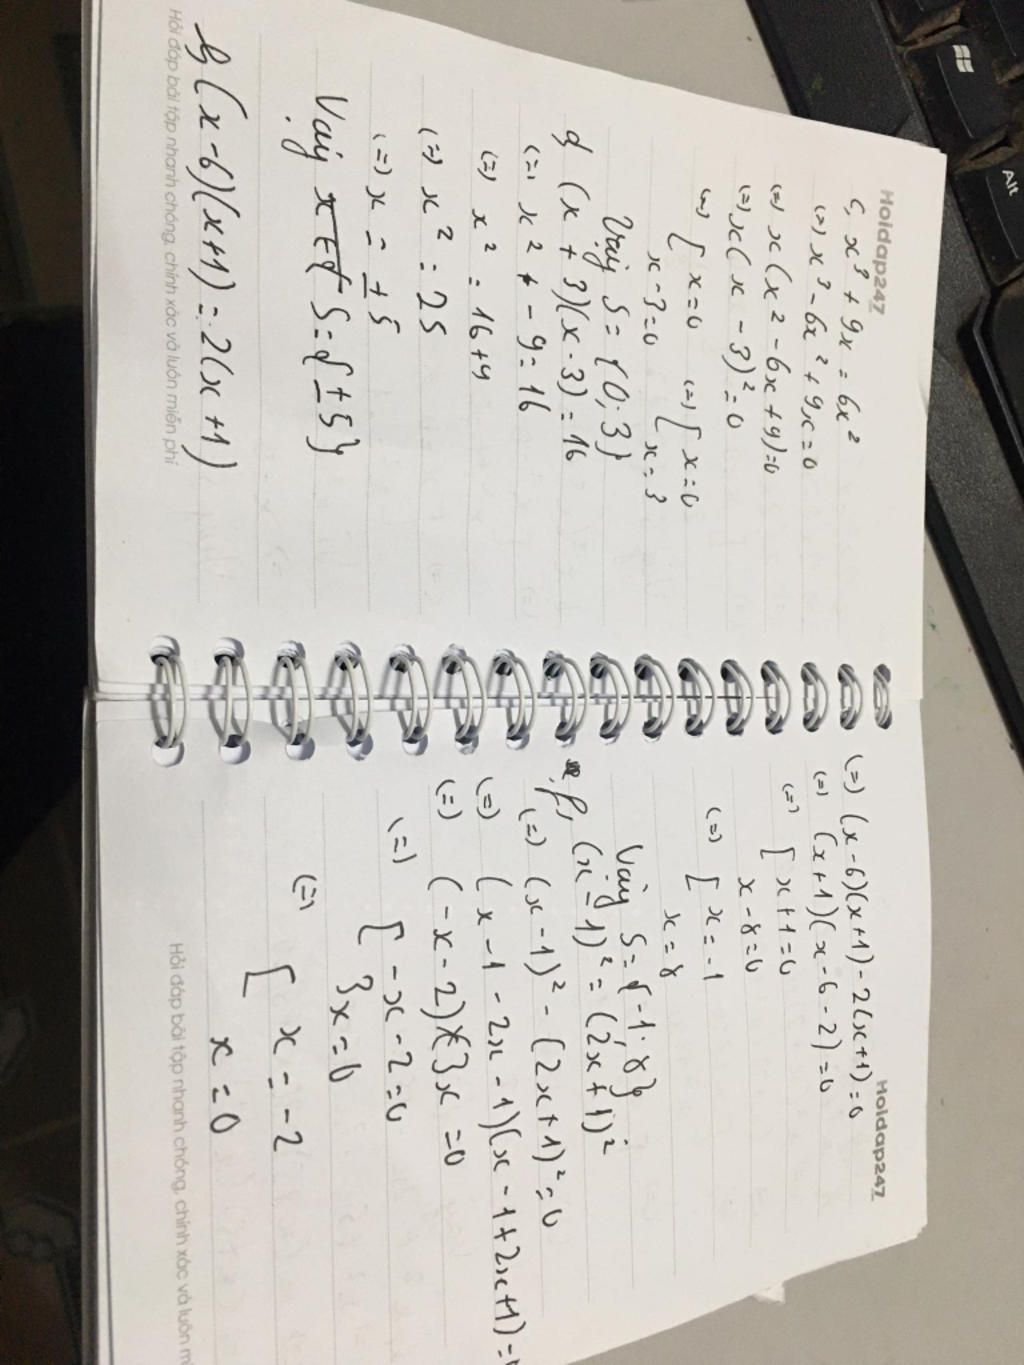 Hoidap247
c, x³ + 9x = 6x²
(=) x³ - 6x² + 9x = 0
(=) x(x² - 6x + 9) = 0
(=) x(x - 3)² = 0
(=) [ x = 0 (=) [ x = 0
x - 3 = 0 [ x = 3
Vậy S = {0; 3}
d (x + 3)(x - 3) = 16
(=) x² - 9 = 16
(=) x² = 16 + 9
(=) x² = 25
(=) x = ± 5
Vậy S = {± 5}
(x - 6)(x + 1) = 2(x + 1)
Hỏi đáp bài tập nhanh chóng, chính xác và luôn miễn phí
Hoidap247
(=) (x - 6)(x + 1) - 2(x + 1) = 0
(=) (x + 1)(x - 6 - 2) = 0
(=) [ x + 1 = 0
x - 8 = 0
(=) [ x = -1
x = 8
Vậy S = {-1; 8}
f, (x - 1)² = (2x + 1)²
(=) (x - 1)² - (2x + 1)² = 0
(=) (x - 1 - 2x - 1)(x - 1 + 2x + 1) = 0
(=) (-x - 2) 3x = 0
(=) [ -x - 2 = 0
3x = 0
(=) [ x = -2
x = 0
Hỏi đáp bài tập nhanh chóng, chính xác và luôn mi